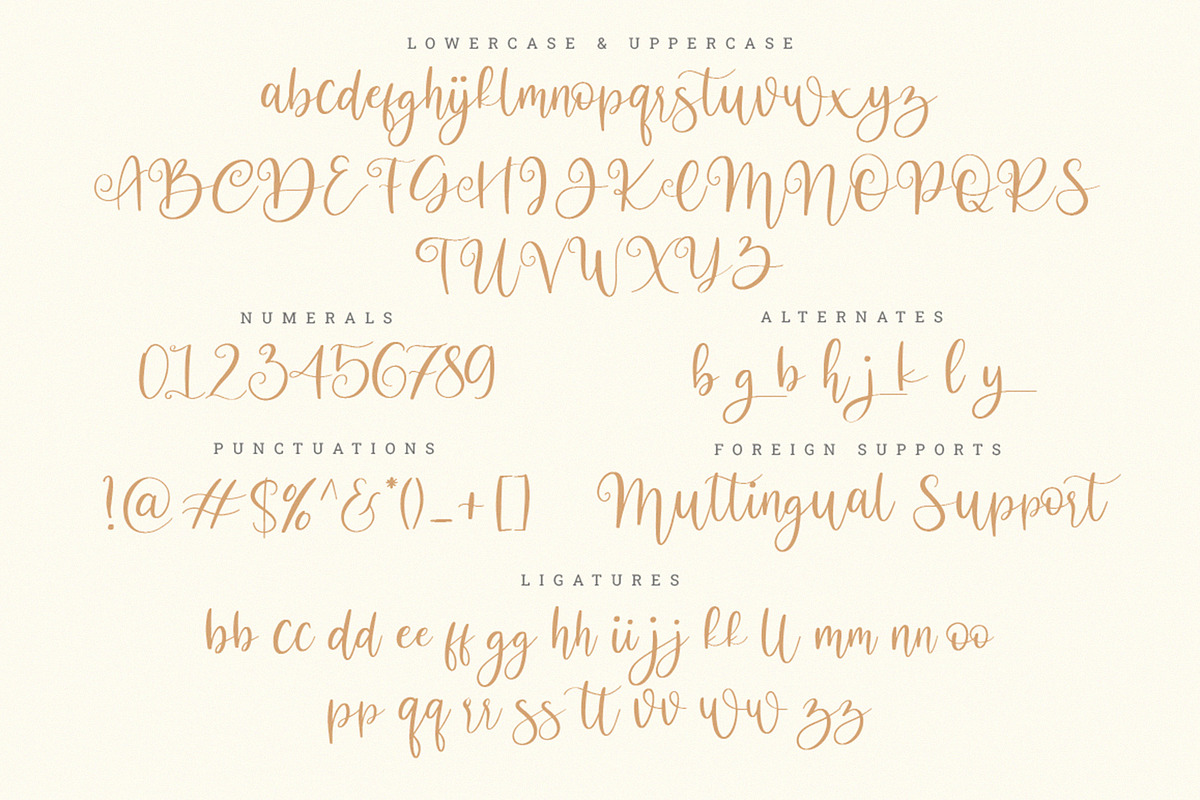 LOWERCASE & UPPERCASE
abcdefghijklmnopqrstuvwxyz
ABCDEFGHIJKLMNOPQRS
TUVWXYZ
NUMERALS
0123456789
ALTERNATES
b g_b h j_k l y_
PUNCTUATIONS
!@#$%^&*()_+[]
FOREIGN SUPPORTS
Multingual Support
LIGATURES
bb cc dd ee ff gg hh ii jj kk ll mm nn oo
pp qq rr ss tt vv ww zz